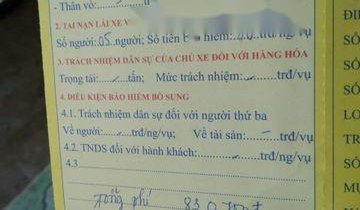 - Thân vỏ
2. TAI NẠN LÁI XE V
Số người: 05 người; Số tiền b 10 trđ/ng/vụ
3. TRÁCH NHIỆM DÂN SỰ CỦA CHỦ XE ĐỐI VỚI HÀNG HÓA
Trọng tải: tấn; Mức trách nhiệm trđ/vụ
4. ĐIỀU KIỆN BẢO HIỂM BỔ SUNG
4.1. Trách nhiệm dân sự đối với người thứ ba
Về người: trđ/ng/vụ; Về tài sản: trđ/vụ
4.2. TNDS đối với hành khách: trđ/ng/vụ
4.3
Tổng phí 830
ĐI
SỐ
BI
SỐ
SỐ
LO
TR
SỐ
MU
TH